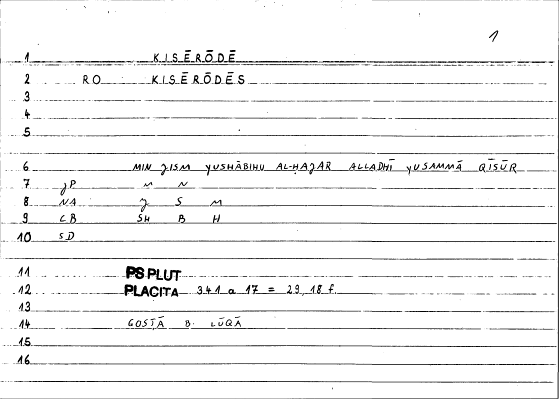 1
1 KISĒRŌDĒ
2 RO KISĒRŌDĒS
3
4
5
6 MIN JISM YUSHĀBIHU AL-HAJAR ALLADHĪ YUSAMMĀ QĪSŪR
7 JP M N
8 NA J S M
9 CB SH B H
10 SD
11 PS PLUT
12 PLACITA 341 a 17 = 29, 18 f.
13
14 GOSṬĀ B. LŪQĀ
15
16